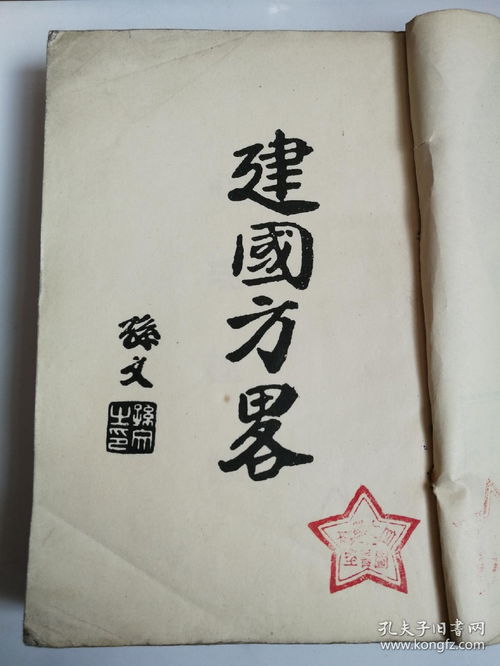 建國方畧
孫文
孫文之印
孔夫子旧书网
www.kongfz.com